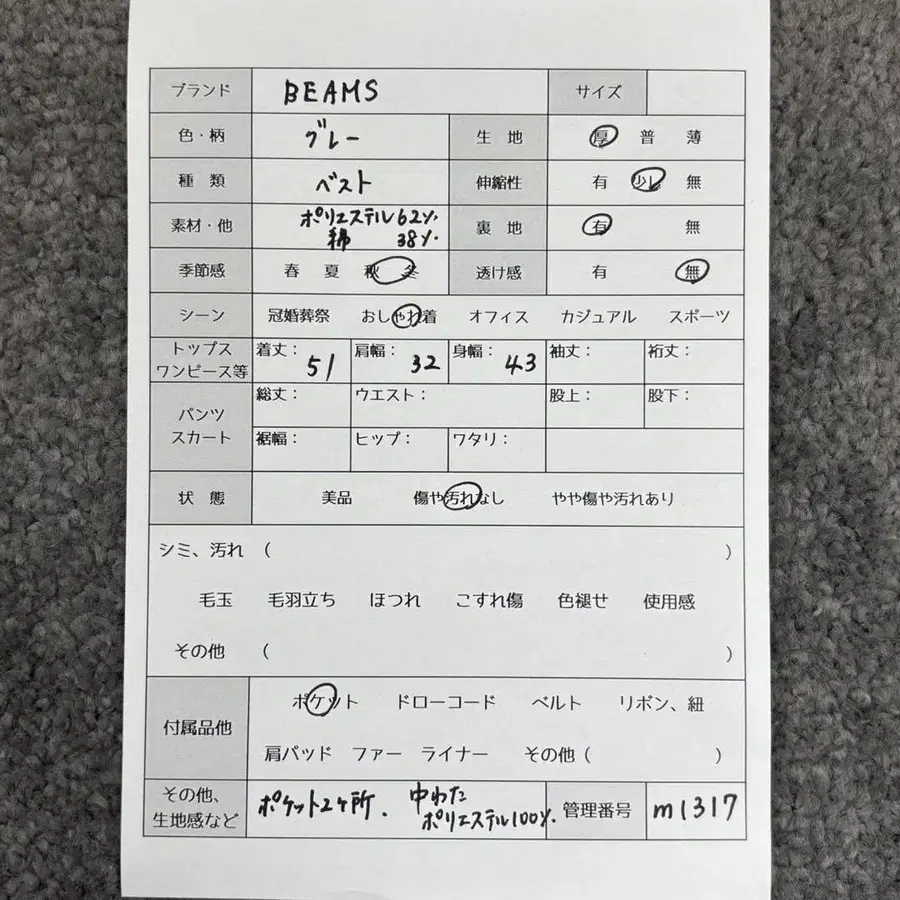 ブランド BEAMS サイズ
色・柄 グレー 生 地 厚 普 薄
種 類 ベスト 伸縮性 有 少し 無
素材・他 ポリエステル62%. 裏 地 有 無
綿 38%.
季節感 春 夏 秋 冬 透け感 有 無
シーン 冠婚葬祭 おしゃれ着 オフィス カジュアル スポーツ
トップス 着丈： 肩幅： 身幅： 袖丈： 裄丈：
ワンピース等 51 32 43
パンツ 総丈： ウエスト： 股上： 股下：
スカート 裾幅： ヒップ： ワタリ：
状 態 美品 傷や汚れなし やや傷や汚れあり
シミ、汚れ （ ）
毛玉 毛羽立ち ほつれ こすれ傷 色褪せ 使用感
その他 （ ）
付属品他 ポケット ドローコード ベルト リボン、紐
肩パッド ファー ライナー その他（ ）
その他、 ポケット2ヶ所. 中わた 管理番号 m1317
生地感など ポリエステル100%.